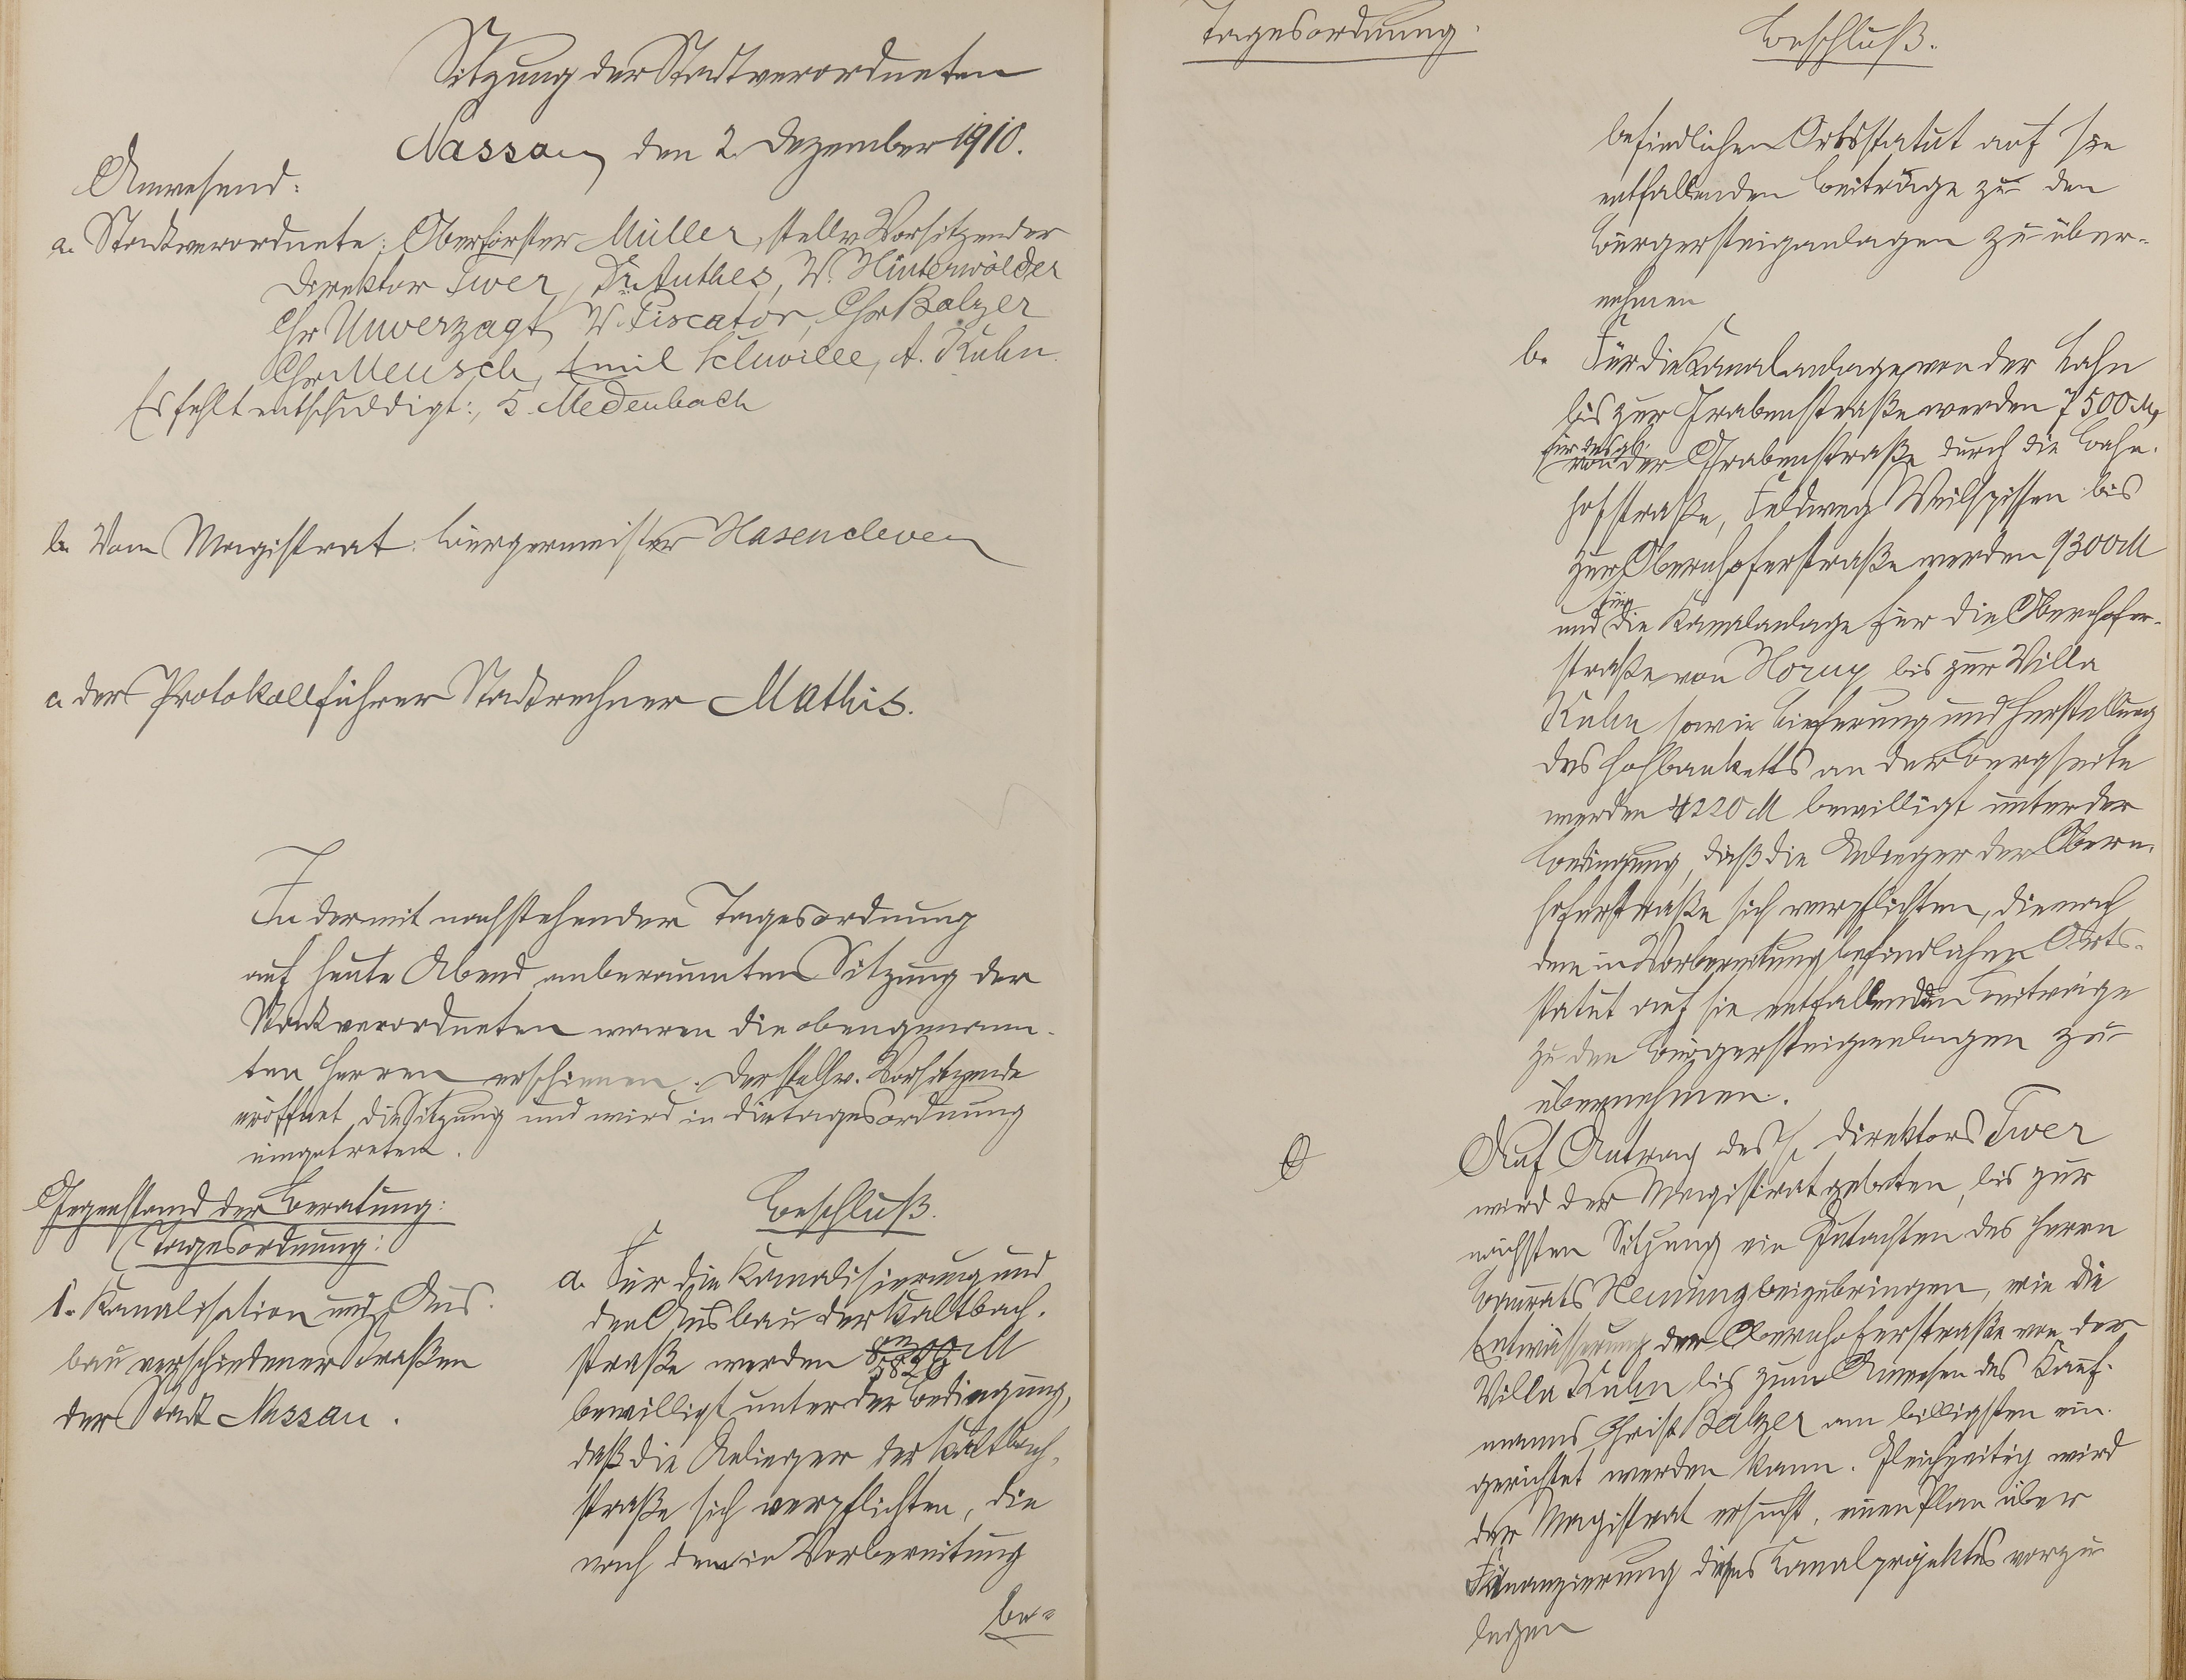 Sitzung der Stadtverordneten
Nassau, den 2. Dezember 1910.
Anwesend:
a. Stadtverordnete: Oberförster Müller, stellv. Vorsitzender
Direktor Twer, Dr. Anthes, W. Hinterwälder
Chr Unverzagt, W. Piscator, Chr Balzer
Chr. Meusch, Emil Schwille, A. Kuhn.
Es fehlt entschuldigt: S. Medenbach
b. Vom Magistrat: Bürgermeister Hasenclever
c. der Protokollführer Stadtrechner Mathis.
In der mit nachstehender Tagesordnung
auf heute Abend anberaumten Sitzung der
Stadtverordneten waren die obengenann-
ten Herren erschienen. Der stellv. Vorsitzende
eröffnet die Sitzung und wird in die Tagesordnung
eingetreten.
Gegenstand der Beratung:
(Tagesordnung:
1. Kanalisation und Aus-
bau verschiedener Straßen
der Stadt Nassau.
Beschluß.
a. Für die Kanalisierung und
den Ausbau der Kaltbach-
straße werden 5820 M
bewilligt unter der Bedingung,
daß die Anlieger der Kaltbach-
straße sich verpflichten, die
nach dem in Vorbereitung
be-
Tagesordnung.
Beschluß.
befindlichen Ortsstatut auf sie
entfallenden Beiträge zu den
Bürgersteiganlagen zu über-
nehmen
b. Für die Kanalanlage von der Lahn
bis zur Grabenstraße werden 7500 M,
für desgl.
von der Grabenstraße durch die Bahn-
hofstraße, Feldweg Weilspissen bis
zur Obernhoferstraße werden 9300 M
für
und die Kanalanlage für die Obernhofer-
straße von Horny bis zur Villa
Kuhn sowie Lieferung und Herstellung
des Hochbanketts an der Bergseite
werden 4220 M bewilligt unter der
Bedingung, daß die Anlieger der Obern-
hoferstraße sich verpflichten, die nach
dem in Vorbereitung befindlichen Orts-
statut auf sie entfallenden Beiträge
zu den Bürgersteiganlagen zu
übernehmen.
Auf Antrag des H. Direktors Twer
wird der Magistrat gebeten, bis zur
nächsten Sitzung ein Gutachten des Herrn
Baurats Henning beizubringen, wie die
Entwässerung der Obernhoferstraße von der
Villa Kuhn bis zum Anwesen des Kauf-
manns Christ. Balzer am billigsten ein-
gerichtet werden kann. Gleichzeitig wird
der Magistrat ersucht, einen Plan über
Finanzierung dieses Kanalprojektes vorzu-
legen